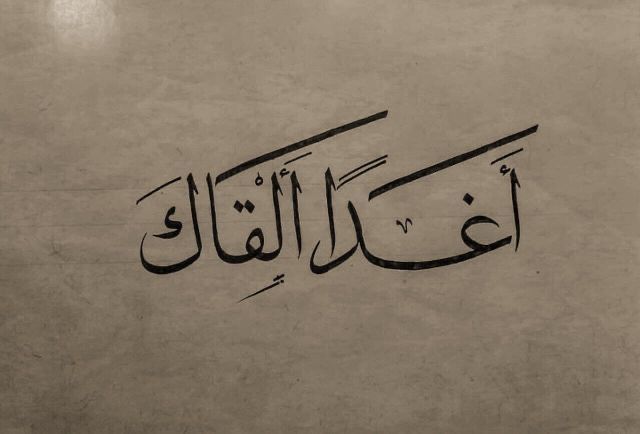 أَغَدًا أَلْقَاكَ